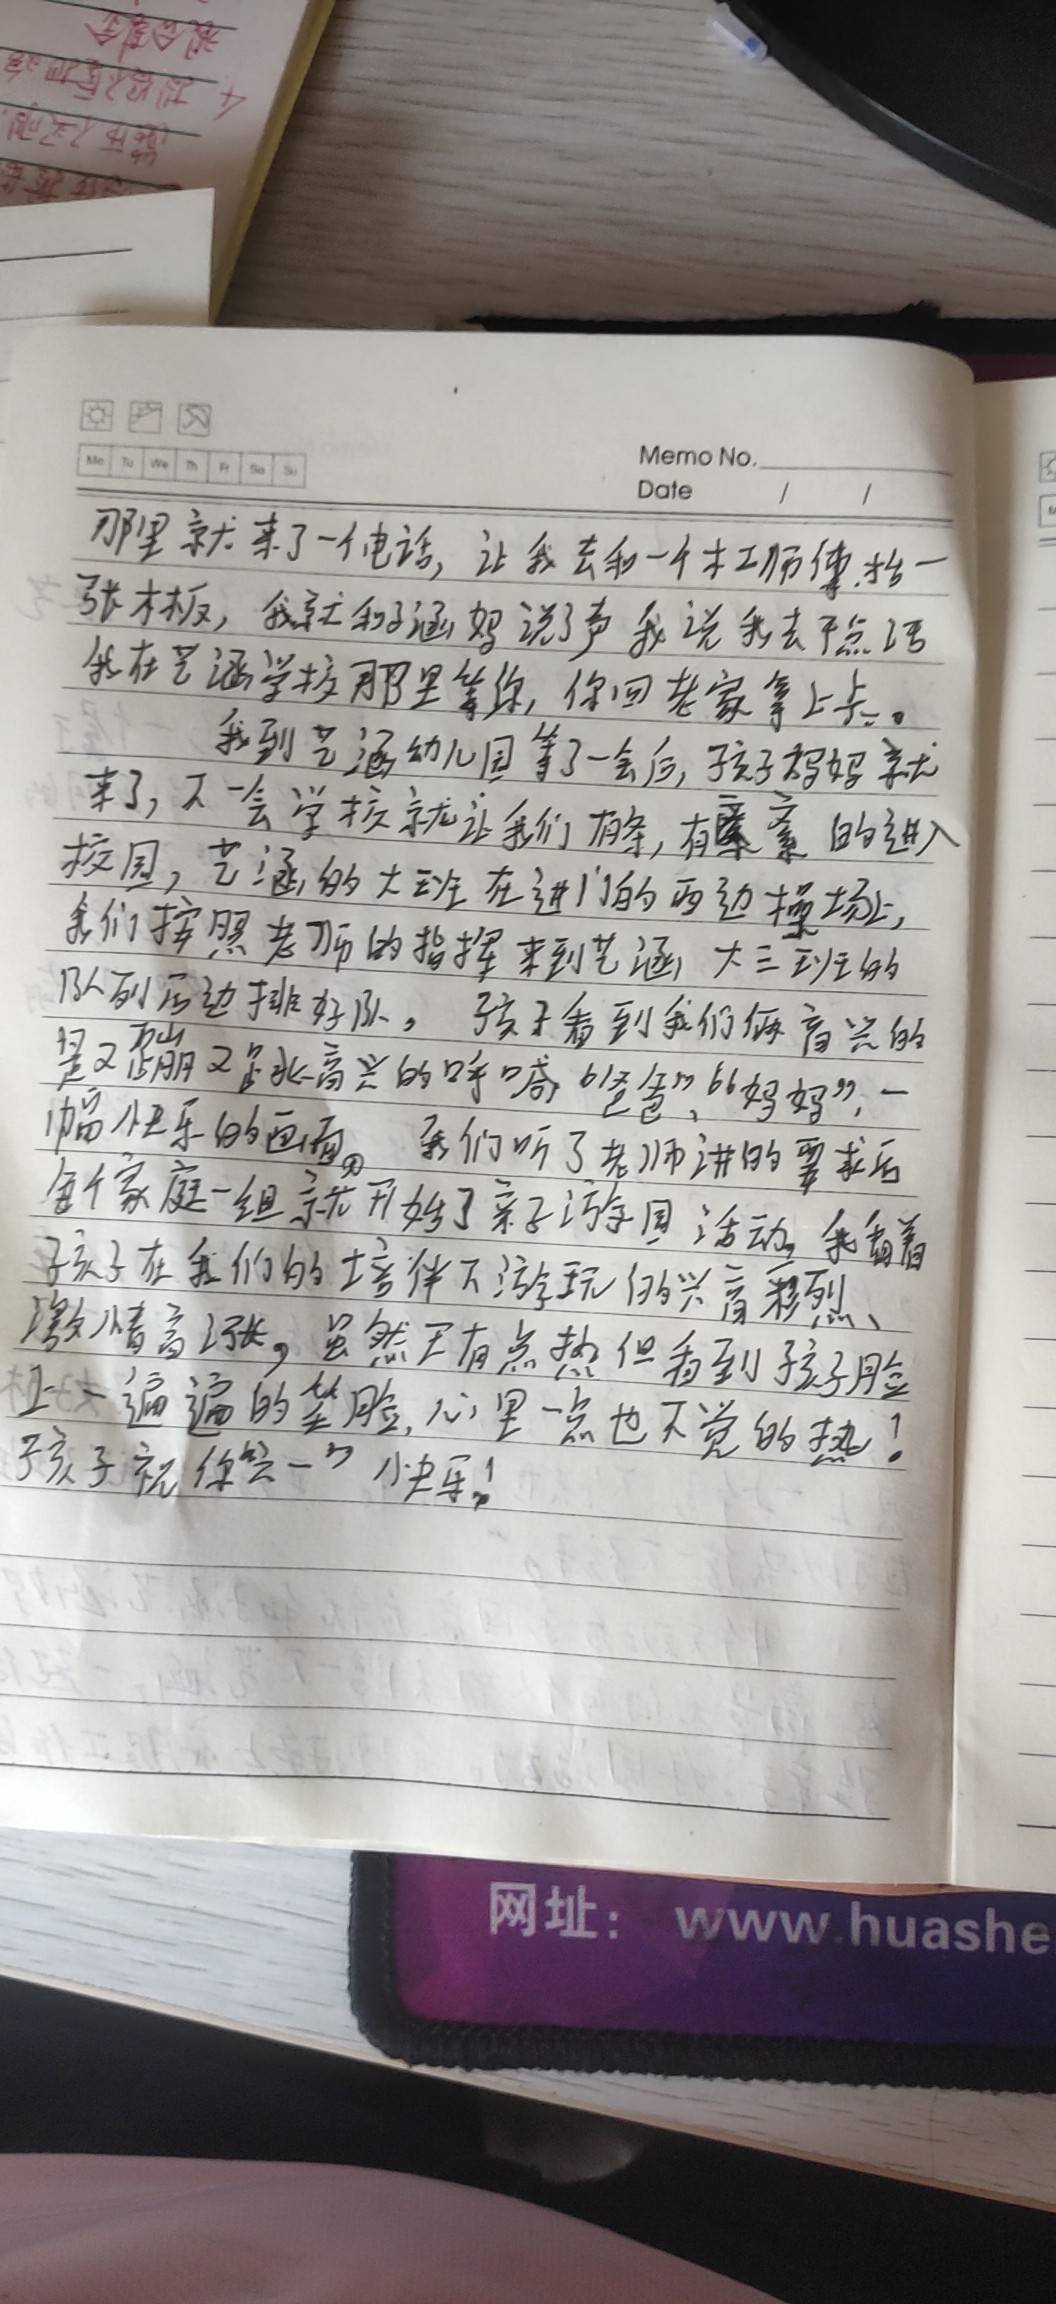 Mo Tu We Th Fr Sa Su
Memo No.
Date / /
那里就来了一个电话，让我去和一个木工师傅抬一
张木板，我就和子涵妈说了声我说我去干点活
我在艺涵学校那里等你，你回老家拿上卡。
我到艺涵幼儿园等了一会后，孩子妈妈就
来了，不一会学校就让我们有条，有紊的进入
校园，艺涵的大班在进门的西边操场上，
我们按照老师的指挥来到艺涵大三班的
队列后边排好队。孩子看到我们俩高兴的
是又蹦又跳高兴的呼喊“爸爸”、“妈妈”，一
幅快乐的画面。我们听了老师讲的要求后
每个家庭一组就开始了亲子游园活动。我看着
孩子在我们的培伴下游玩的兴高彩烈、
激情高涨，虽然天有点热但看到孩子脸
上一遍遍的笑脸，心里一点也不觉的热！
孩子祝你六一快乐！
网址： www.huashe